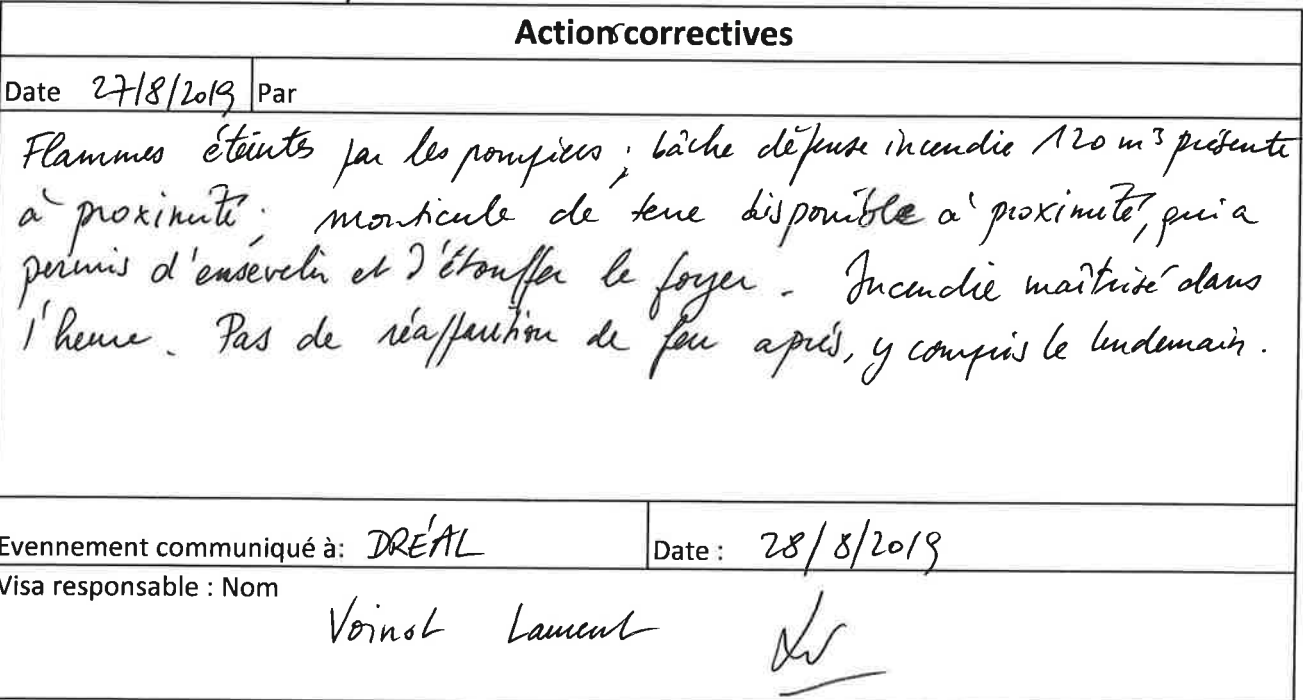 Actions correctives
Date 27/8/2019 Par
Flammes éteintes par les pompiers ; bâche défense incendie 120 m³ présente
à proximité ; monticule de terre disponible à proximité, qui a
permis d'ensevelir et d'étouffer le foyer. Incendie maîtrisé dans
l'heure. Pas de réapparition de feu après, y compris le lendemain.
Evennement communiqué à: DRÉAL Date : 28/8/2019
Visa responsable : Nom
Voinot Laurent LV